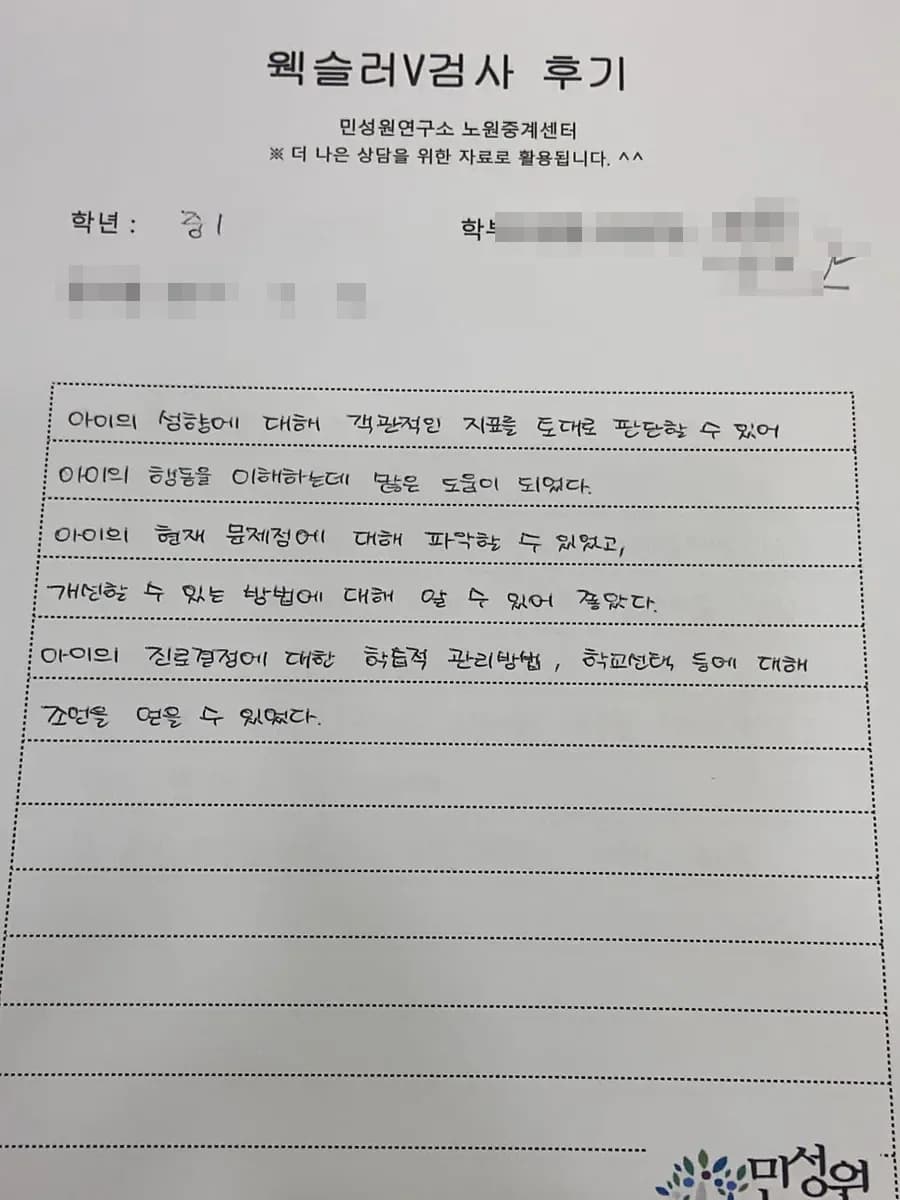 웩슬러V검사 후기
민성원연구소 노원중계센터
※ 더 나은 상담을 위한 자료로 활용됩니다. ^^
학년 : 중1 학부
아이의 성향에 대해 객관적인 지표를 토대로 판단할 수 있어
아이의 행동을 이해하는데 많은 도움이 되었다.
아이의 현재 문제점에 대해 파악할 수 있었고,
개선할 수 있는 방법에 대해 알 수 있어 좋았다.
아이의 진로결정에 대한 학습적 관리방법, 학교선택 등에 대해
조언을 얻을 수 있었다.
민성원